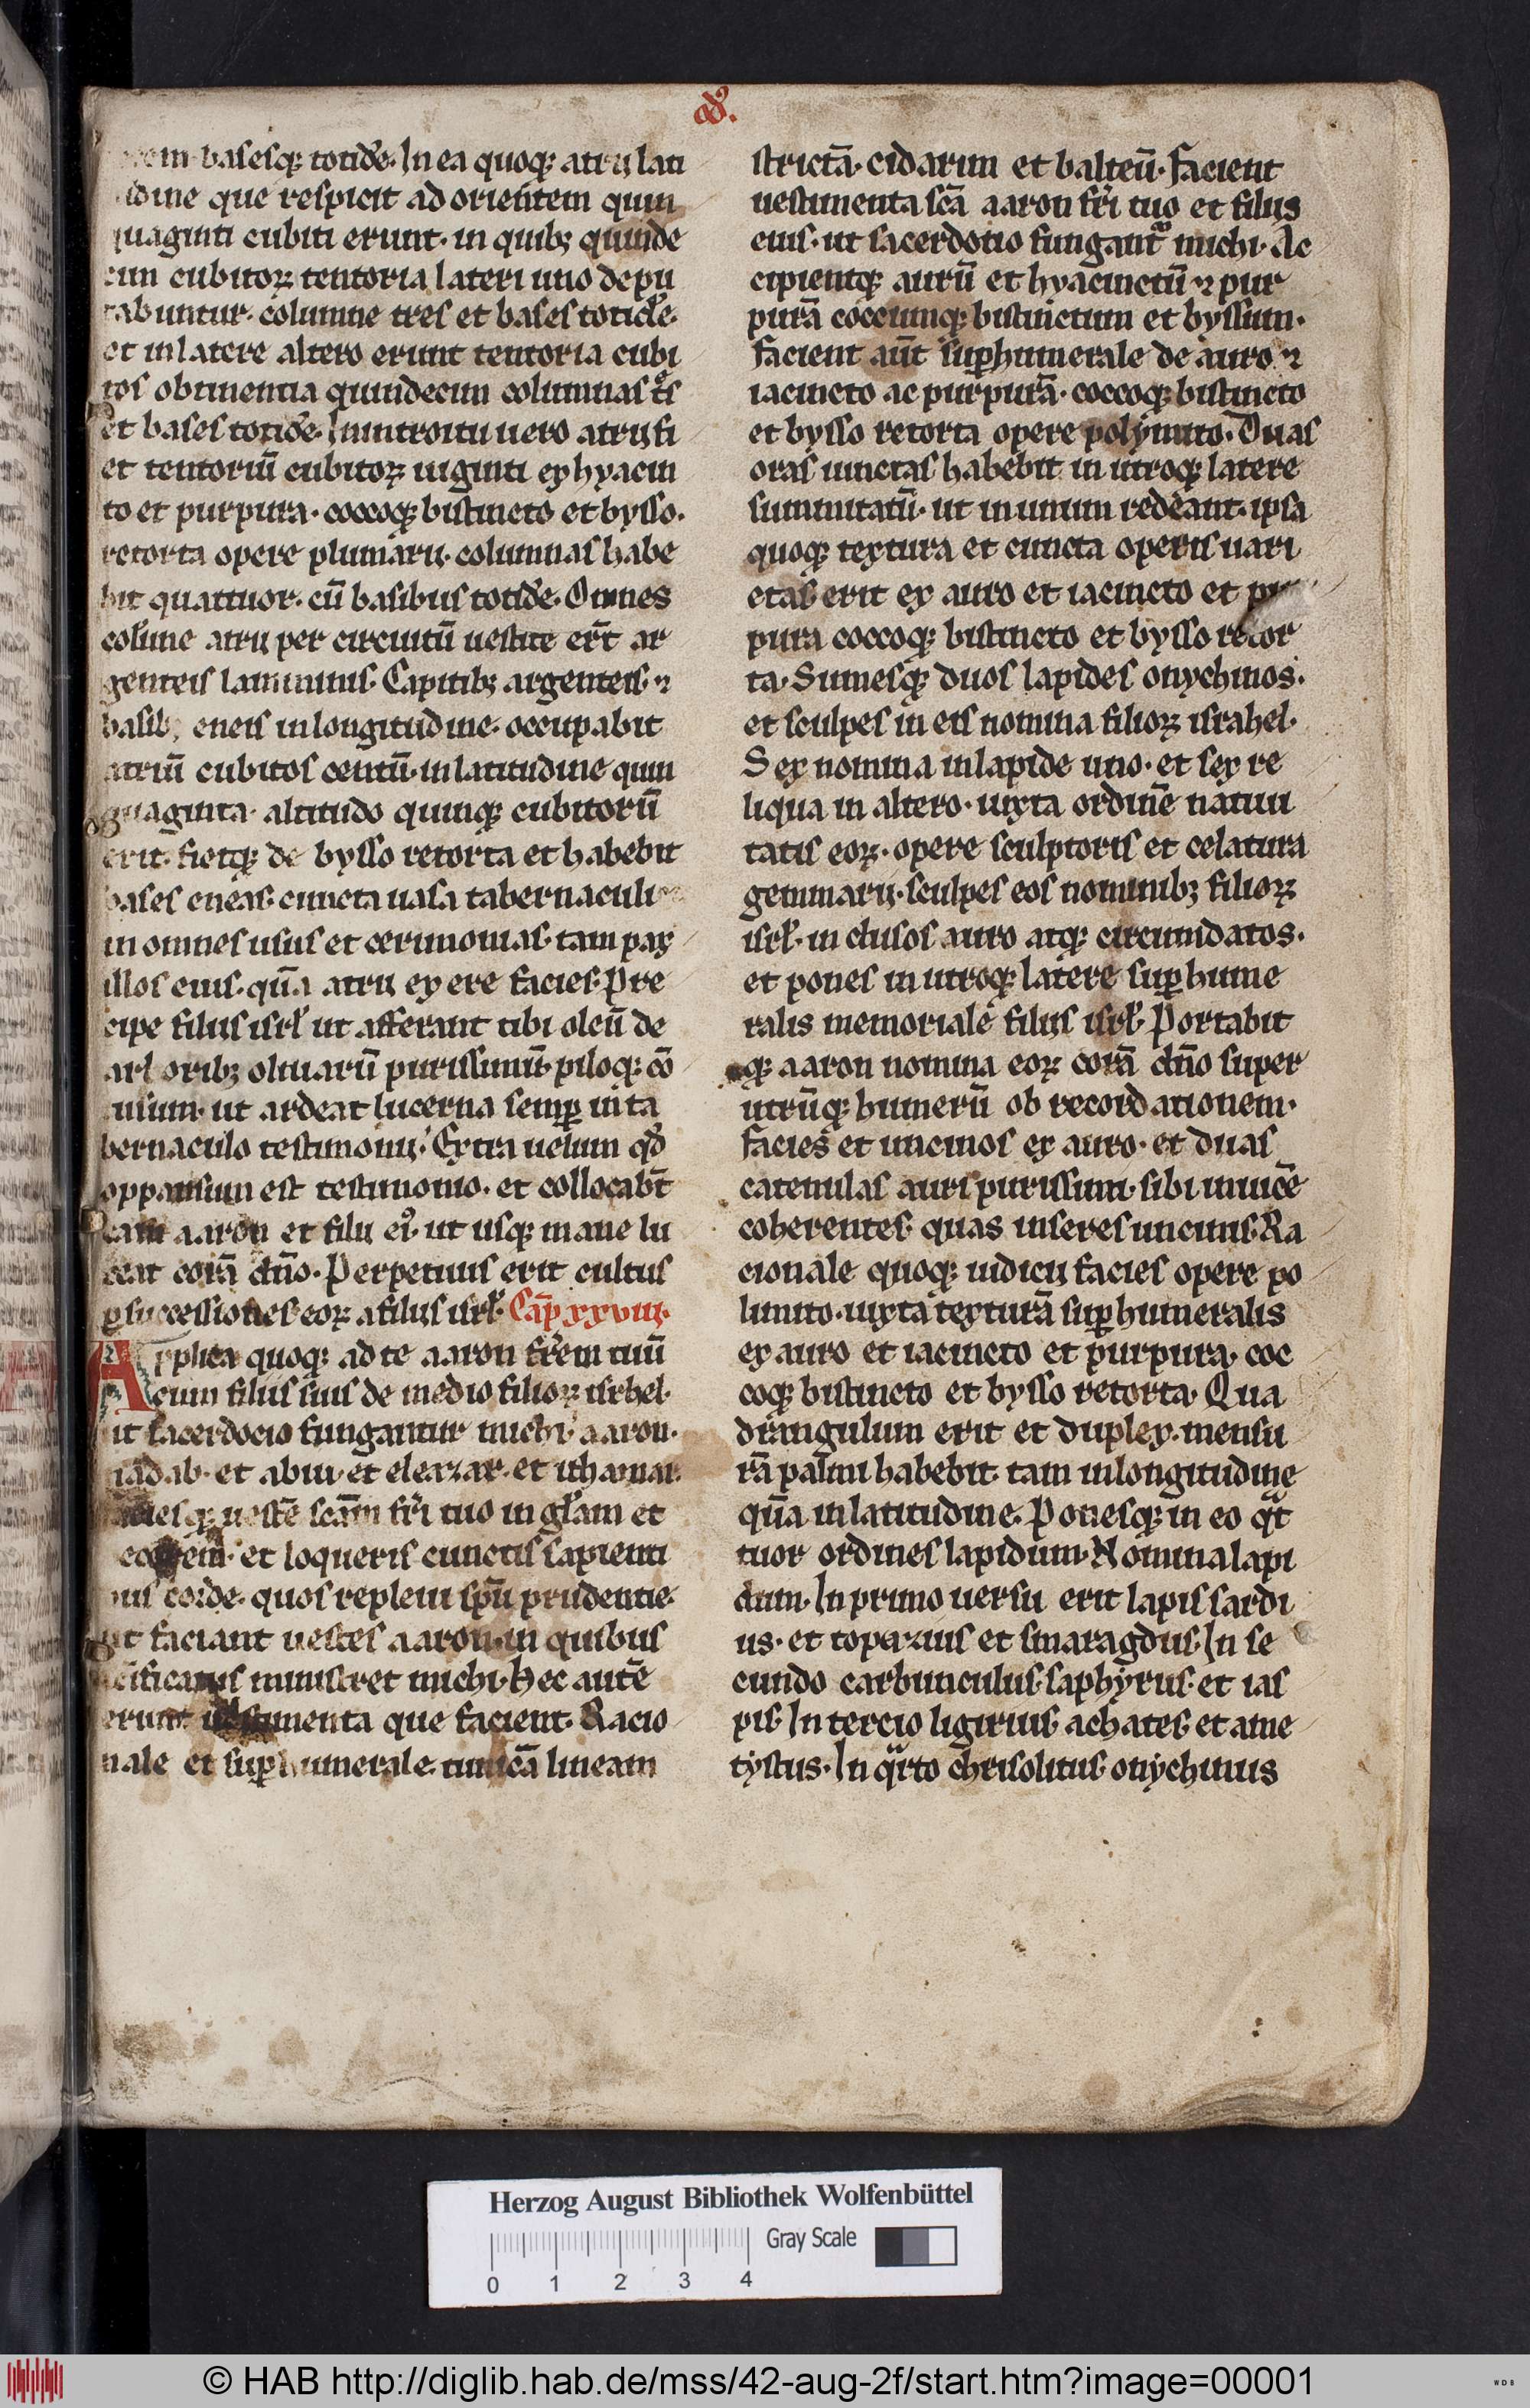 ꝏ.
basesq; totidē. In ea quoq; atrij lati
dine que respicit ad orientem quin
quaginti cubiti erunt. in quib; quinde
cim cubitoꝝ tentoria lateri uno depu
tabuntur. columne tres et bases totidē.
et in latere altero erunt tentoria cubi
tos obtinentia quindecim columnas tͤs
et bases totidē. In introitu uero atrij fi
et tentoriū cubitoꝝ uiginti ex hyacin
to et purpura. coccoq; bistincto et bysso.
retorta opere plumarij. columnas habe
bit quattuor. cū basibus totidē. Omnes
colūne atrij per circuitū uestite er̄t ar
genteis laminnis. Capitib; argenteis. ⁊
basib; eneis in longitudine. occupabit
atriū cubitos centū. in latitudine quin
quaginta. altitudo quinq; cubitorū
erit. fietq; de bysso retorta et habebit
bases eneas. cuncta uasa tabernaculi
in omnes usus et cerimonias. tam pax
illos eius. quā atrij ex ere facies. Pre
cipe filiis isrł ut afferant tibi oleū de
arboribus oliuarū purissimū. piloq; cō
tusum. ut ardeat lucerna semꝑ in ta
bernaculo testimonij. Extra uelum qd̄
oppansum est testimonio. et collocab̄t
eam aaron et filij ei᾽. ut usq; mane lu
ceat corā dn̄o. Perpetuus erit cultus
ꝑ successiones eoꝝ a filiis isrł. Cap̄ xxviii.
Applica quoq; ad te aaron fr̄em tuū
cum filiis suis de medio filioꝝ isrhel.
ut sacerdocio fungantur michi. aaron.
nadab. et abiu. et eleazar. et ithamar.
faciesq; uestē scām fr̄i tuo in gl̄am et
decorem. et loqueris cunctis sapienti
bus corde. quos repleui spū prudentie.
ut faciant uestes aaron. in quibus
sc̄ificatus ministret michi. Hec autē
erunt uestimenta que facient. Racio
nale et suꝑhumerale. tunicā lineam
strictā. cidarim et balteū. facient
uestimenta scā aaron fr̄i tuo et filijs
eius. ut sacerdotio fungant᷑ michi. Ac
cipientq; aurū et hyacinctū ⁊ pur
purā coccumq; bistinctum et byssum.
facient aūt suꝑhumerale de auro ⁊
iacincto ac purpurā. coccoq; bistincto
et bysso retorta opere polymito. Duas
oras iunctas habebit in utroq; latere
summitatū. ut in unum redeant. ipsa
quoq; textura et cuncta operis uari
etas erit ex auro et iacincto et pur
pura coccoq; bistincto et bysso retor
ta. Sumesq; duos lapides onychinos.
et sculpes in eis nomina filioꝝ israhel.
Sex nomina in lapide uno. et sex re
liqua in altero. iuxta ordinē natiui
tatis eoꝝ. opere sculptoris et celatura
gemmarij. sculpes eos nominib; filioꝝ
isrł. in clusos auro atq; circumdatos.
et pones in utroq; latere suꝑhume
ralis memoriale filijs isrł. Portabit
q; aaron nomina eoꝝ corā dn̄o super
utrūq; humerū ob recordationem.
facies et uncinos ex auro. et duas
catenulas auri purissimi. sibi inuicē
coherentes. quas inseres uncinis. Ra
cionale quoq; iudicij facies opere po
limito. iuxta texturā suꝑhumeralis
ex auro et iacincto et purpura. coc
coq; bistincto et bysso retorta. Qua
drangulum erit et duplex. mensu
rā palmi habebit. tam in longitudine
quā in latitudine. Ponesq; in eo qͣt
tuor ordines lapidum. Nomina lapi
dum. In primo uersu erit lapis sardi
us. et topazius et smaragdus. In se
cundo carbunculus. saphyrus. et ias
pis. In tercio ligirius. achates. et ame
tystus. In qͣrto chrisolitus. onychinus
Herzog August Bibliothek Wolfenbüttel
Gray Scale
0 1 2 3 4
© HAB http://diglib.hab.de/mss/42-aug-2f/start.htm?image=00001
WDB